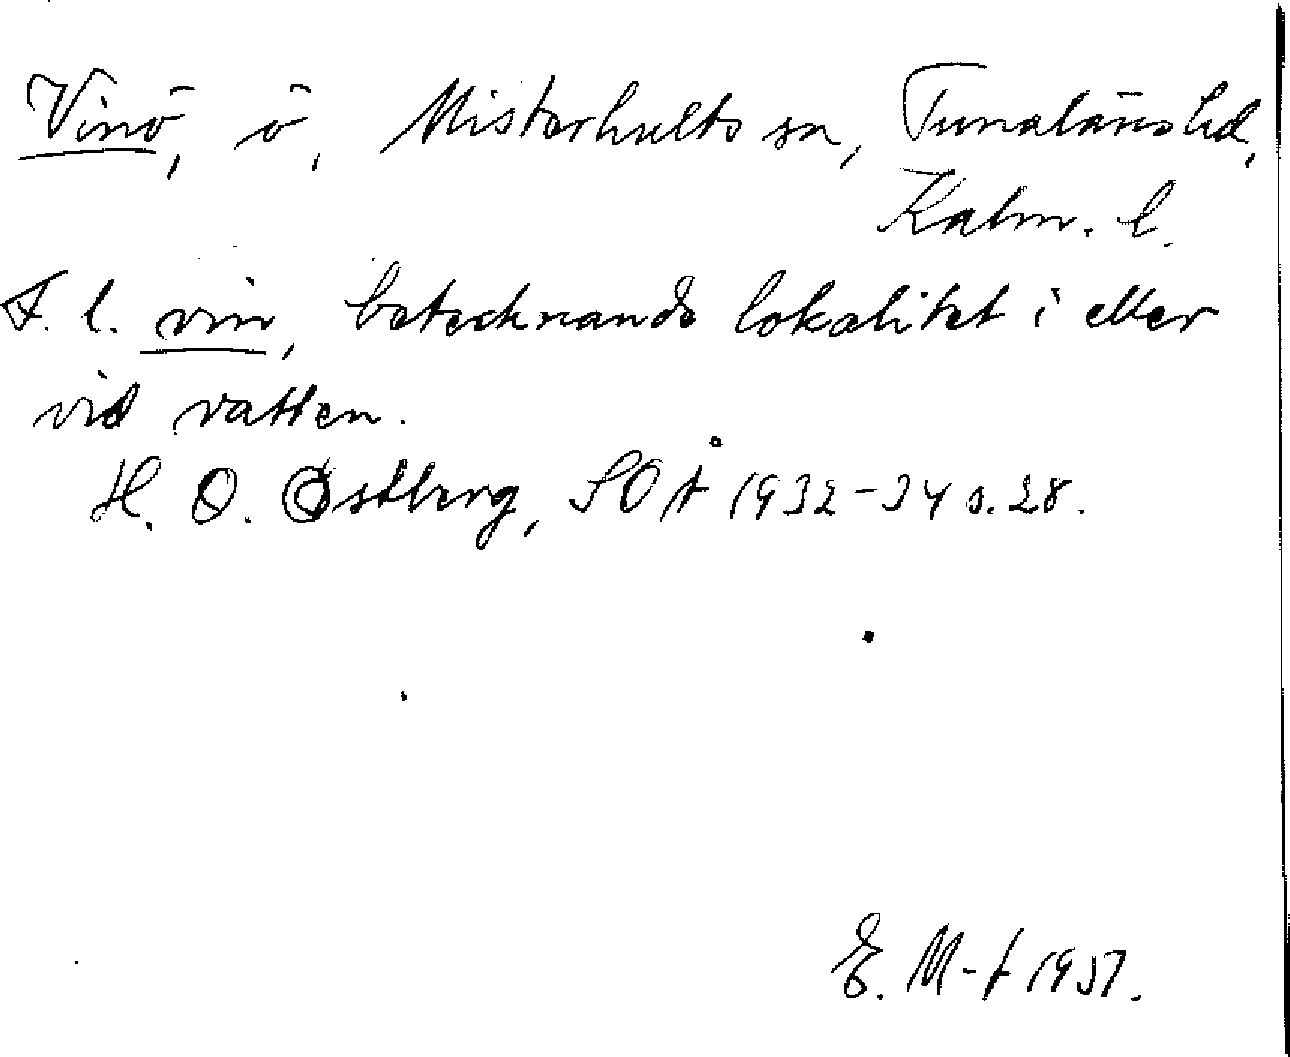 Vinö, ö, Misterhults sn, Tunaläns hd,
Kalm. l.
F. l. vin, betecknande lokalitet i eller
vid vatten.
H. O. Östberg, SOÅ 1932-34 s. 28.
E. M-t 1957.